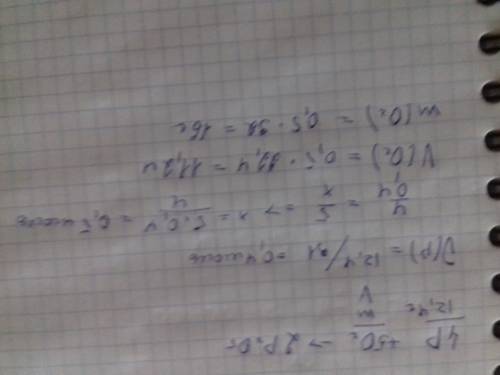 4P + 5O₂ → 2P₂O₅
12,4г m
V
ν(P) = 12,4/31 = 0,4 моль
4/0,4 = 5/x => x = 5·0,4/4 = 0,5 моль
V(O₂) = 0,5 · 22,4 = 11,2 л
m(O₂) = 0,5 · 32 = 16г